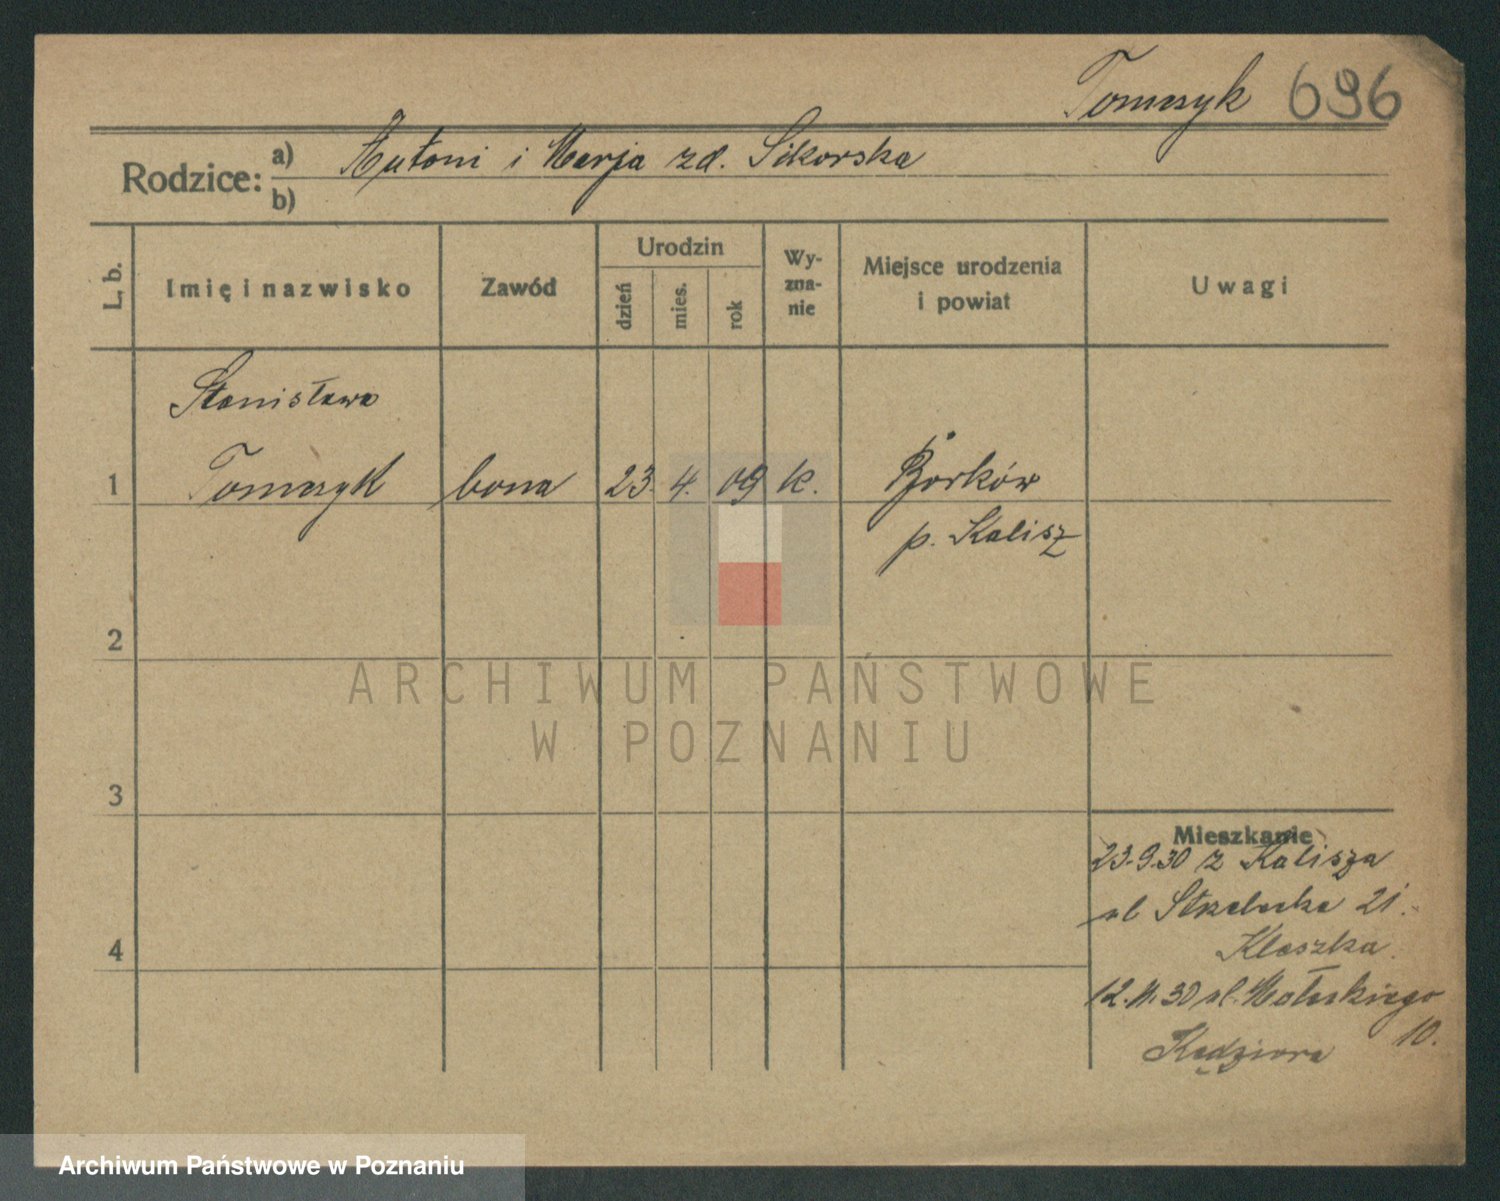 Tomczyk 696
Rodzice: a) Antoni i Marja zd. Sikorska
b)
L. b.
Imię i nazwisko
Zawód
Urodzin
dzień
mies.
rok
Wy-
zna-
nie
Miejsce urodzenia
i powiat
Uwagi
Stanisława
1 Tomczyk bona 23. 4. 09 k. Borków
p. Kalisz
2
ARCHIWUM PAŃSTWOWE
W POZNANIU
3
Mieszkanie
23.9.30 z Kalisza
ul Strzelecka 21.
Kleszka.
4
12.11.30 ul. Małeckiego
10.
Kędziora
Archiwum Państwowe w Poznaniu